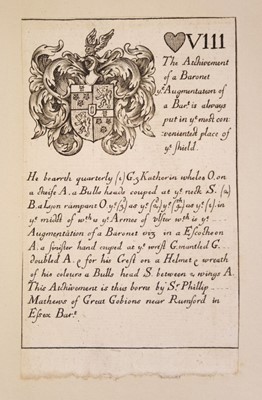 VIII
The Atchivement
of a Baronet
yͤ Augmentation of
a Barͭ is always
put in yͤ most con:
:venientest place of
yͤ shield.
He beareth quarterly (1) G. 3 Katherin wheles O. on
a cheife A. a Bulls heade couped at yͤ neck S. (2)
B. a Lyon rampant O yͤ (3) as yͤ (2) yͤ (4) as yͤ (1). in
yͤ midst of wᶜʰ is yͤ Armes of Ulster wᶜʰ is yͤ
Augmentation of a Baronet viz in a Escotheon
A. a sinister hand couped at yͤ wrest G. mantled G.
doubled A. & for his Crest on a Helmet & wreath
of his colours a Bulls head S. between 2 wings A.
This Atchivement is thus borne by Sͬ Phillip
Mathews of Great Gobions near Rumford in
Essex Barͭ